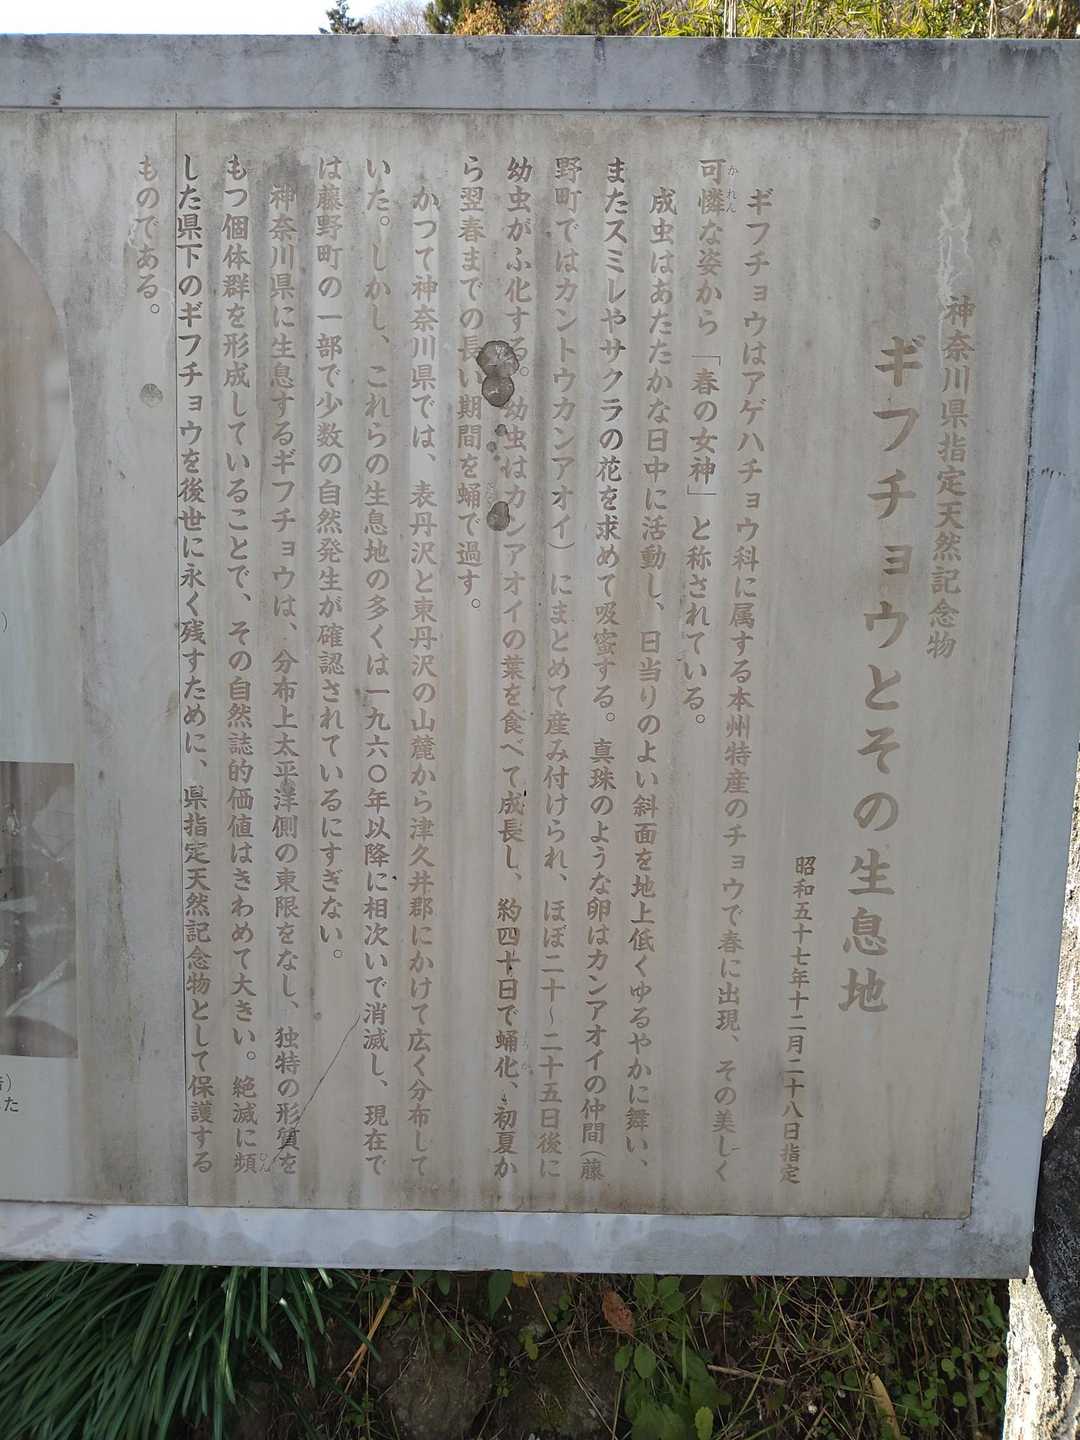 神奈川県指定天然記念物
ギフチョウとその生息地
昭和五十七年十二月二十八日指定
ギフチョウはアゲハチョウ科に属する本州特産のチョウで春に出現、その美しく
可憐な姿から「春の女神」と称されている。
かれん
成虫はあたたかな日中に活動し、日当りのよい斜面を地上低くゆるやかに舞い、
またスミレやサクラの花を求めて吸蜜する。真珠のような卵はカンアオイの仲間(藤
野町ではカントウカンアオイ)にまとめて産み付けられ、ほぼ二十〜二十五日後に
幼虫がふ化する。幼虫はカンアオイの葉を食べて成長し、約四十日で蛹化、初夏か
ら翌春までの長い期間を蛹で過す。
かつて神奈川県では、表丹沢と東丹沢の山麓から津久井郡にかけて広く分布して
いた。しかし、これらの生息地の多くは一九六〇年以降に相次いで消滅し、現在で
は藤野町の一部で少数の自然発生が確認されているにすぎない。
神奈川県に生息するギフチョウは、分布上太平洋側の東限をなし、独特の形質を
もつ個体群を形成していることで、その自然誌的価値はきわめて大きい。絶滅に頻
ひん
した県下のギフチョウを後世に永く残すために、県指定天然記念物として保護する
ものである。
)
)
た